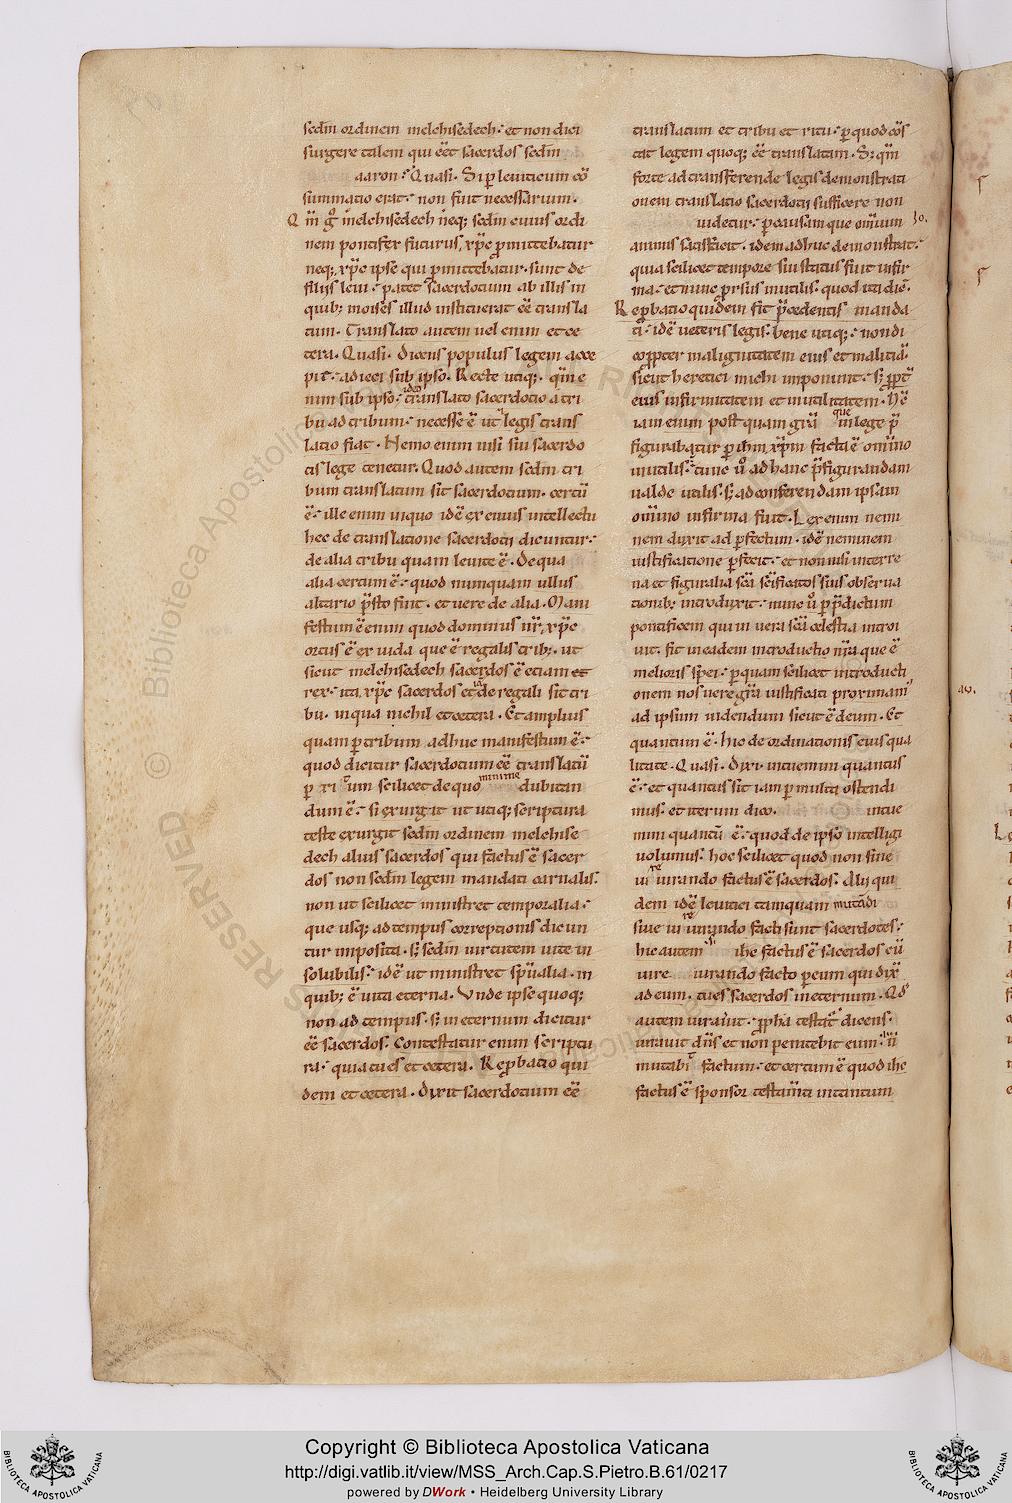 secdm ordinem melchisedech· et non dici
surgere talem qui eēt sacerdos secdm
aaron· Quasi· Si p leuiticum cō
summatio erat· non fuit necessarium·
Qm̄ gͦ melchisedech neq; secdm cuius ordi
nem pontifex futurus xp̄c pmittebatur
neq; xp̄c ipse qui pmittebatur· sunt de
filijs leui· patet sacerdotium ab illis in
quib; moises illud instituerat eē transla
tum· Translato autem uel enim et ce
tera· Quasi· Dicens populus legem acce
pit· adieci sub ipso· Recte utiq;· qm̄ e
nim sub ipso· ideo translato sacerdotio a tri
bu ad tribum· necesse ē ut legis trans
latio fiat· Nemo enim nisi sui sacerdo
tis lege tenetur· Quod autem secdm tri
bum translatum sit sacerdotium· certū
ē· ille enim inquo idē ex cuius intellectu
hec de translatione sacerdotii dicuntur·
de alia tribu quam leuite ē· De qua
alia certum ē· quod numquam ullus
altario p̄sto fuit· et uere de alia· Mani
festum ē enim quod dominus nr̄ xp̄c
ortus ē ex iuda que ē regalis trib;· ut
sicut melchisedech sacerdos ē etiam et
rex· ita xp̄c sacerdos et de regali sit tri
bu· in qua nichil et cetera· Et amplius
quam p tribum adhuc manifestum ē·
quod dicitur sacerdotium eē translatū
p xr̄um scilicet de quo minime dubitan
dum ē· si exurgit ut utiq; scriptura
teste exurgit secdm ordinem melchise
dech alius sacerdos qui factus ē sacer
dos non secdm legem mandati carnalis·
non ut scilicet ministret temporalia·
que usq; ad tempus correptionis dicun
tur imposita· s; secdm uirtutem uite in
solubilis· idē ut ministret spūalia· in
quib; ē uita eterna· Vnde ipse quoq;
non ad tempus· s; in eternum dicitur
eē sacerdos· Contestatur enim scriptu
ra· quia tu es et cetera· Repbatio qui
dem et cetera· Dixit sacerdotium eē
translatum et tribu et ritu· p quod cōs
tat legem quoq; eē translatam· S; qm̄
forte ad transferende legis demonstrati
onem translatio sacerdotii sufficere non
uidetur· p causam que omnium
animis satisfacit· idem adhuc demonstrat·
quia scilicet tempore sui status fuit infir
ma· et nunc prsus inutilis· quod ita diē·
Repbatio quidem fit p̄cedentis manda
ti· idē ueteris legis· bene utiq;· non di
co ppter malignitatem eius et malitiā·
sicut heretici michi imponunt· s; ppt̄
eius infirmitatem et inutilitatem· Hē
iam enim postquam grā que in lege p̄
figurabatur p ihm xp̄m facta ē omino
inutilis· tunc u̇ ad hanc p̄figurandam
ualde utilis· s; ad conferendam ipsam
omino infirma fuit· Lex enim nemi
nem duxit ad pfectum· idē neminem
iustificatione pfecit· et non nisi in terre
na et figuralia scā scīficatos suis obserua
tionib; introduxit· nunc u̇ p p̄dictum
pontificem qui in uera scā celestia introi
uit· fit in eadem introductio nr̄a que ē
melioris spei· p quam scilicet introducti
onem nos uere grā iustificati proximam
ad ipsum uidendum sicut ē deum· Et
quantum ē· hic de ordinationis eius qua
litate· Quasi· Dixi intuemini quantus
ē· et quantus sit iam p multa ostendi
mus· et iterum dico· intue
mini quantū ē· quod de ipso intelligi
uolumus· hoc scilicet quod non sine
iureiurando factus ē sacerdos· Alij qui
dem idē leuitici tamquam mutādi
sine iureiurando facti sunt sacerdotes·
hic autem ihc factus ē sacerdos cū
iure iurando facto p eum qui dix̄
ad eum· tu es sacerdos in eternum· Qđ
autem iurauit· ppha testat̄ dicens·
iurauit dn̄s et non penitebit eum· n̄
mutabi factum· et certum ē quod ihc
factus ē sponsor testam̄ti in tantum
Copyright © Biblioteca Apostolica Vaticana
http://digi.vatlib.it/view/MSS_Arch.Cap.S.Pietro.B.61/0217
powered by DWork • Heidelberg University Library
BIBLIOTECA APOSTOLICA VATICANA
BIBLIOTECA APOSTOLICA VATICANA